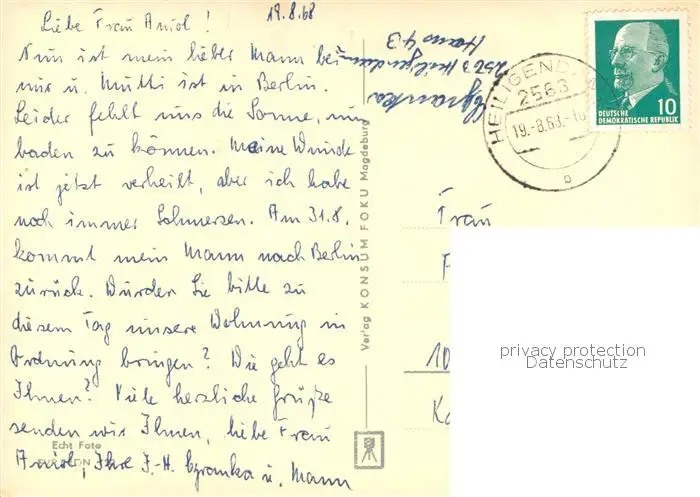 19.8.68
Liebe Frau Aniol!
Nun ist mein lieber Mann bei
mir u. Mutti ist in Berlin.
Leider fehlt uns die Sonne, um
baden zu können. Meine Wunde
ist jetzt verheilt, aber ich habe
noch immer Schmerzen. Am 31.8.
kommt mein Mann nach Berlin
zurück. Würden Sie bitte zu
diesem Tag unsere Wohnung in
Ordnung bringen? Wie geht es
Ihnen? Viele herzliche Grüße
senden wir Ihnen, liebe Frau
Aniol, Ihre J.-H. Czranka u. Mann
Echt Foto
Czranka
2523 Heiligendamm
Haus 43
Verlag KONSUM FOKU Magdeburg
HEILIGEND
2563
19.-8.68.-10
b
10
DEUTSCHE
DEMOKRATISCHE REPUBLIK
Frau
10
privacy protection
Datenschutz